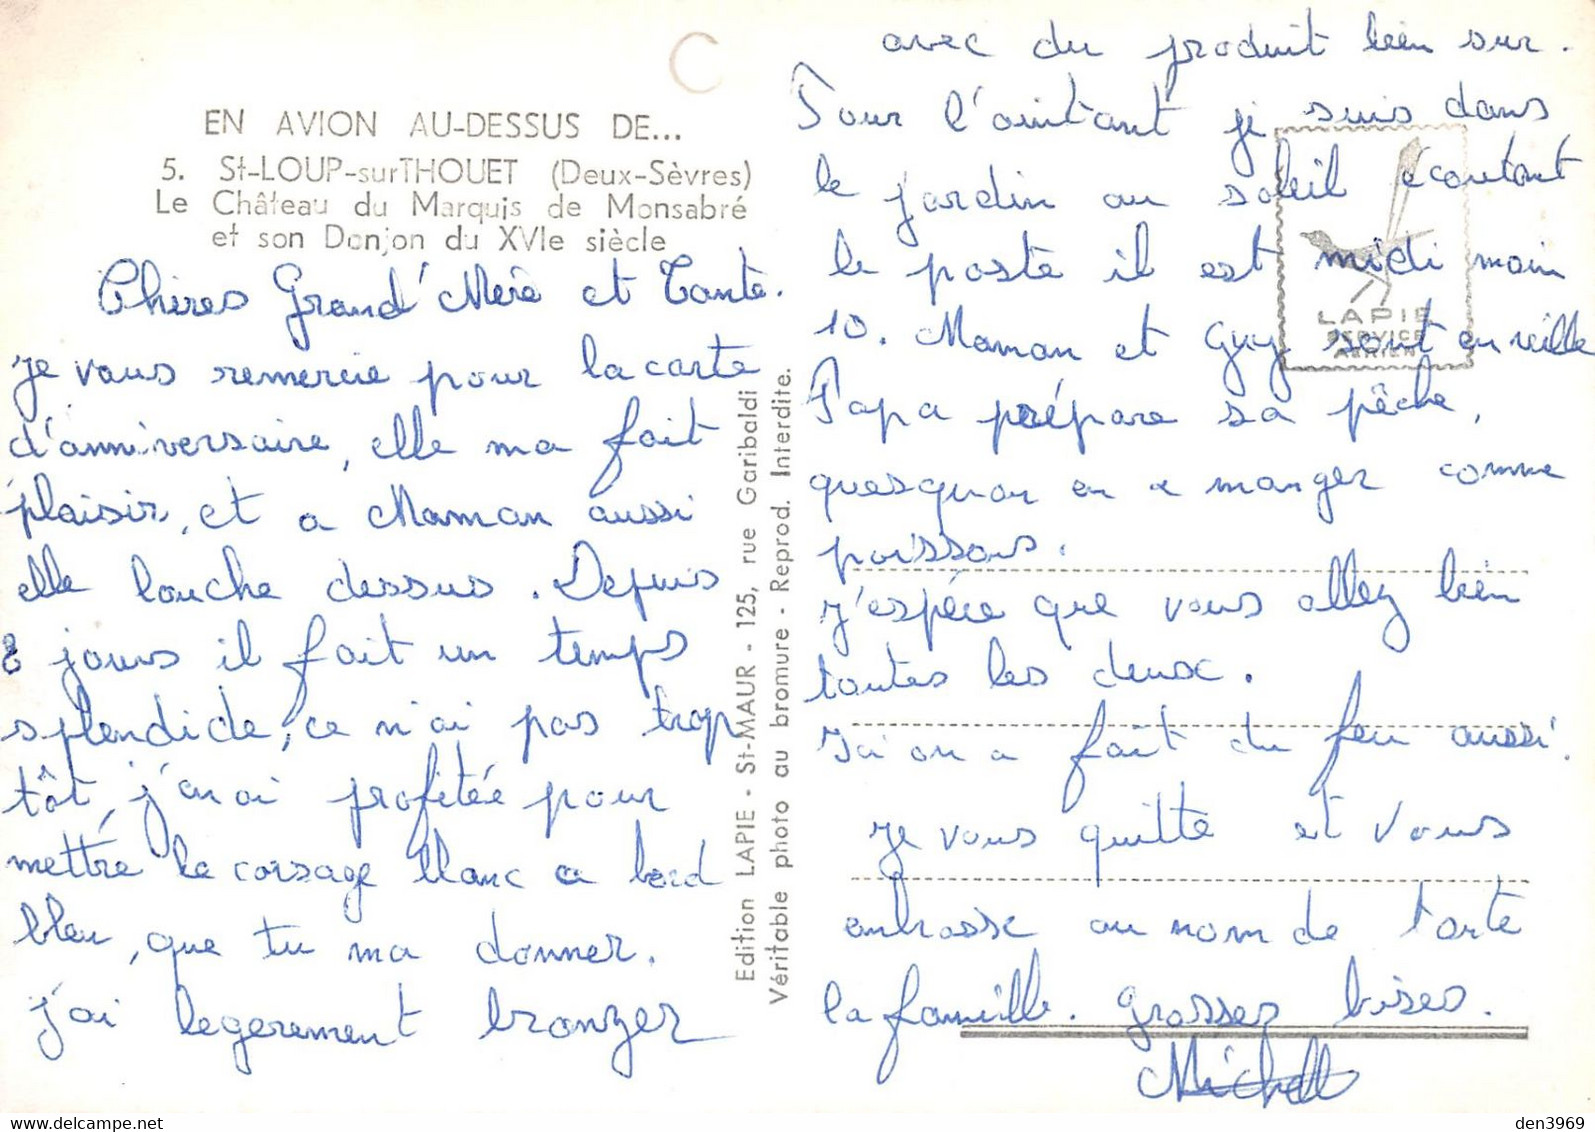 EN AVION AU-DESSUS DE...
5. St-LOUP-sur THOUET (Deux-Sèvres)
Le Château du Marquis de Monsabré
et son Donjon du XVIe siècle
Chères Grand'Mère et Tante.
Je vous remercie pour la carte
d'anniversaire, elle ma fait
plaisir, et a Maman aussi
elle louche dessus. Depuis
8 jours il fait un temps
splendide, ce n'ai pas trop
tôt, j'en ai profitée pour
mettre le corsage blanc a bord
bleu, que tu ma donner.
j'ai legerement bronzer
Edition LAPIE - St-MAUR - 125, rue Garibaldi
Véritable photo au bromure - Reprod. Interdite.
avec du produit bien sur.
Pour l'instant je suis dans
le jardin au soleil écoutant
le poste il est midi moin
10. Maman et Guy sont en ville
Papa prépare sa pêche,
quesquon en a manger comme
poissons.
J'espère que vous allez bien
toutes les deux.
Ici on a fait du feu aussi.
Je vous quitte et vous
embrasse au nom de toute
la famille. Grosses bises.
LAPIE
SERVICE
AERIEN
den3969